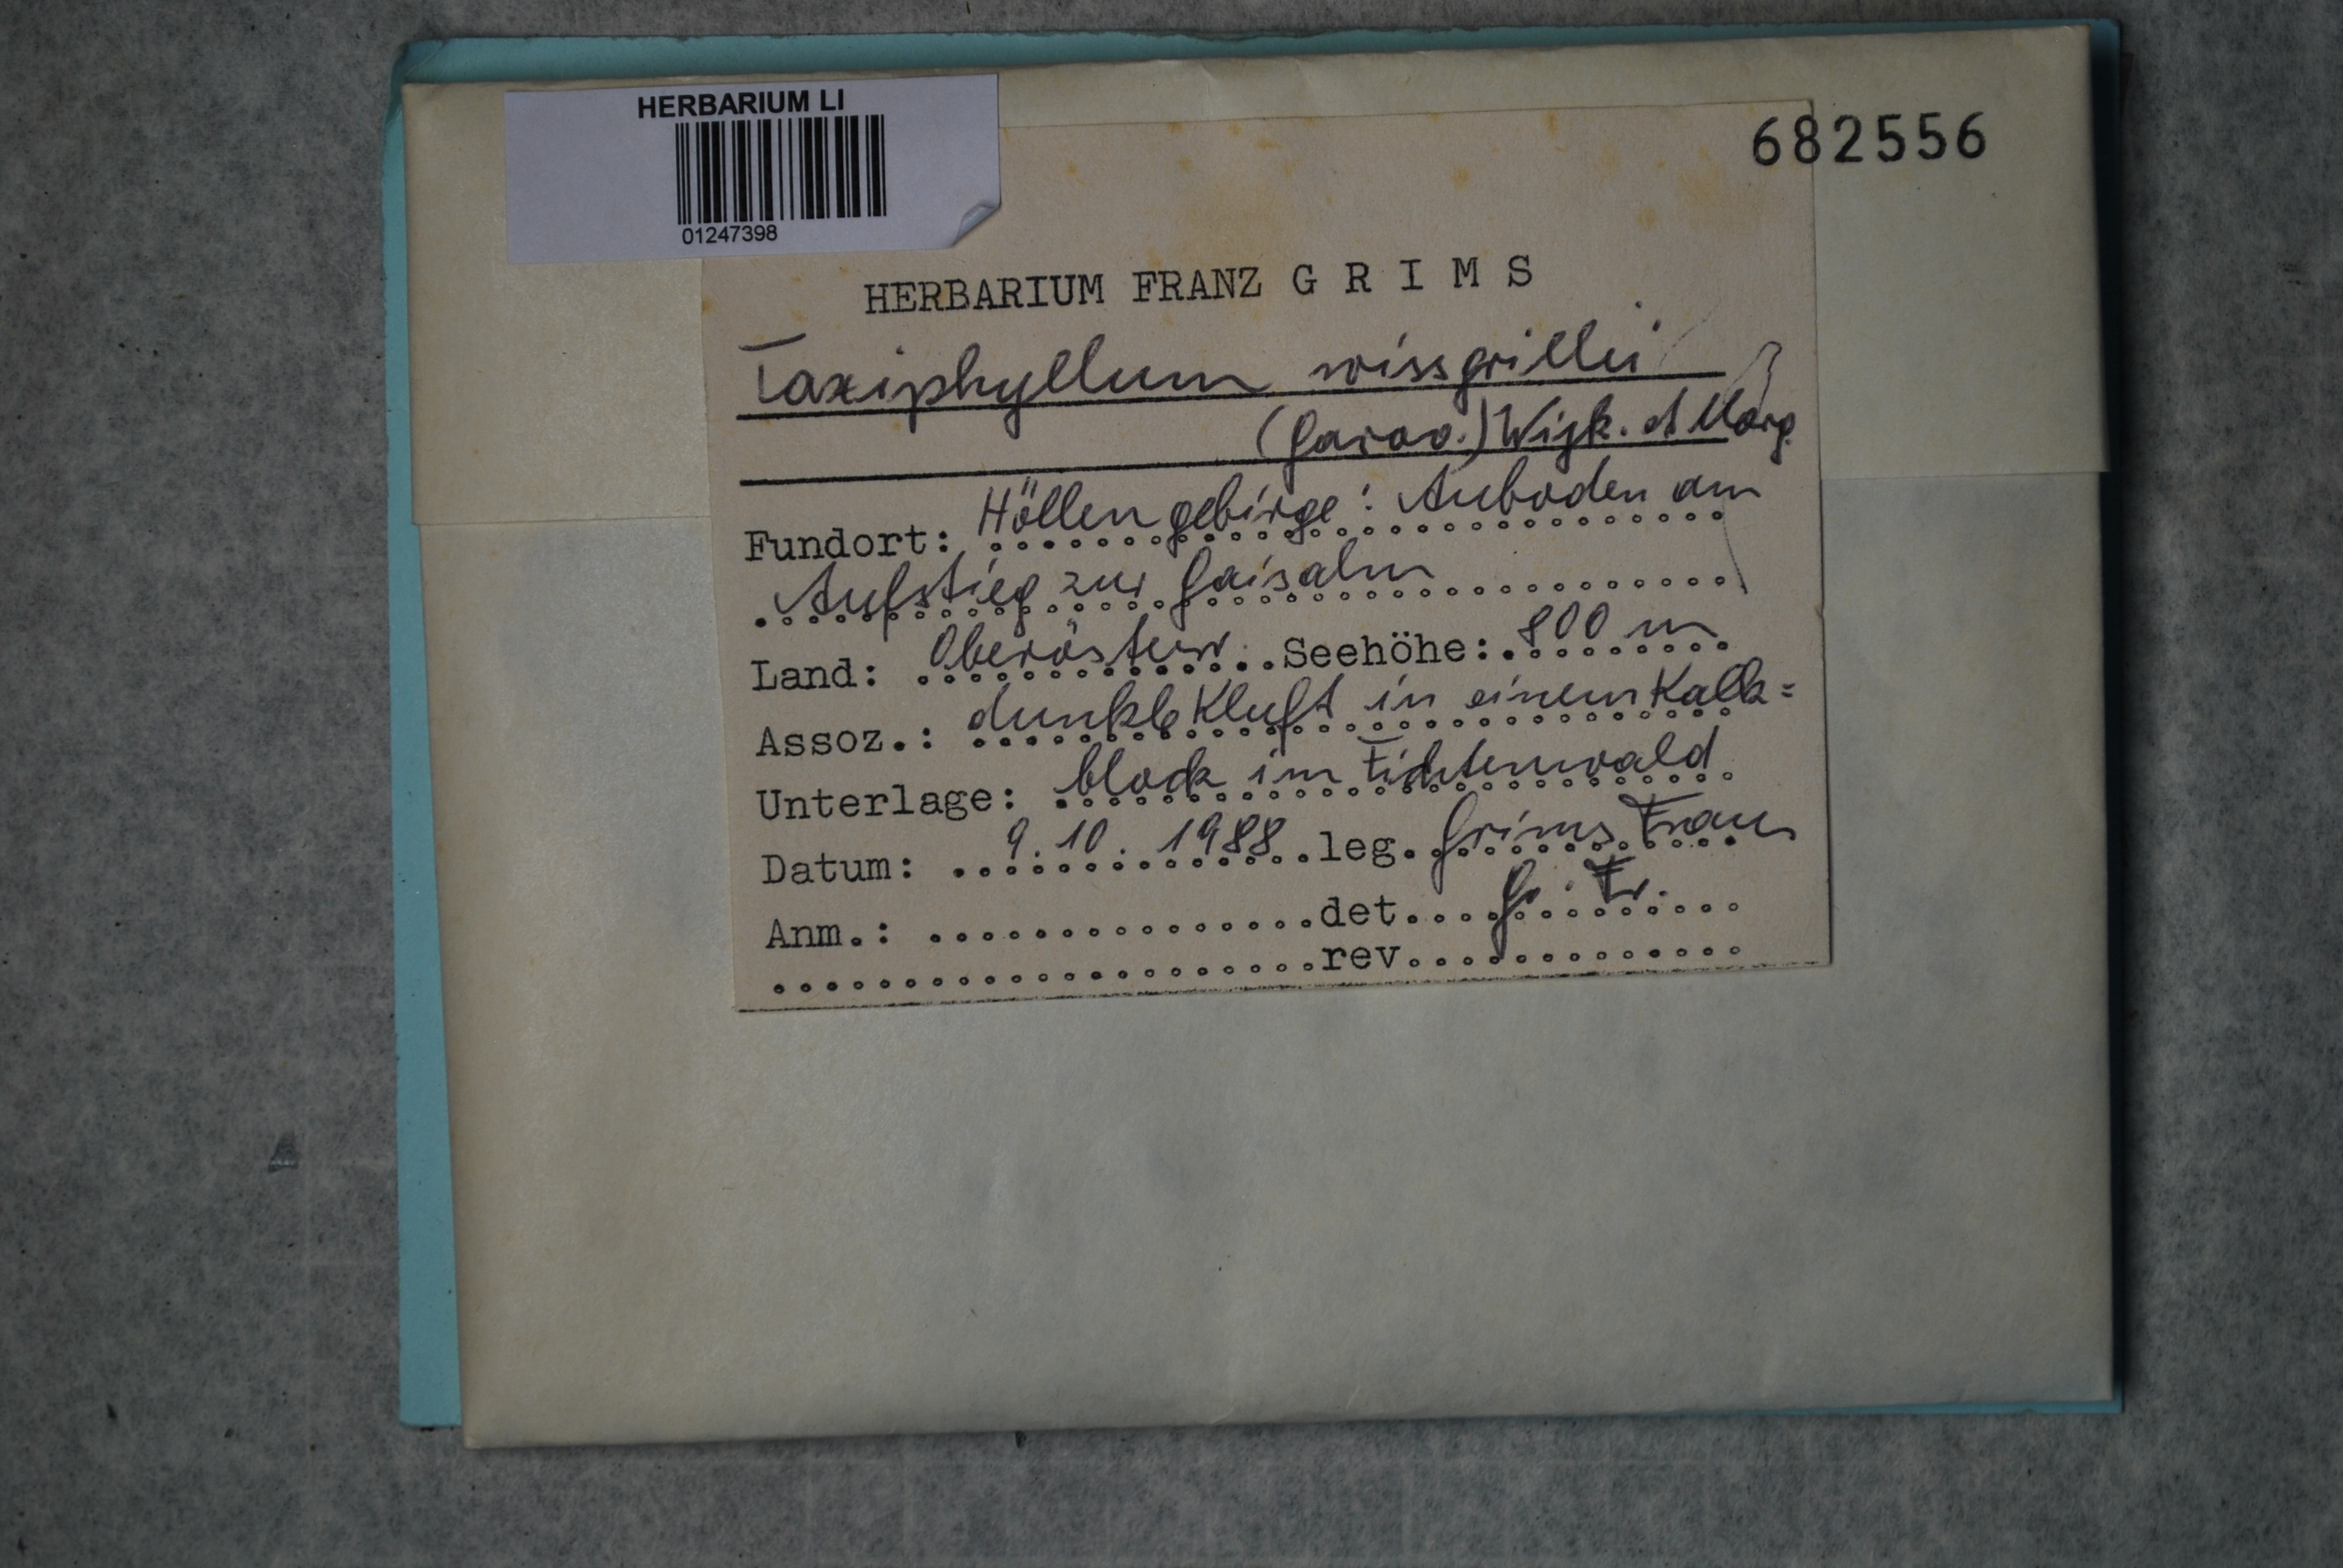 HERBARIUM LI
01247398
682556
HERBARIUM FRANZ G R I M S
Taxiphyllum wissgrillei
(Garov.) Wijk. et Marg.
Fundort: Höllengebirge: Auboden am
Aufstieg zur Gaisalm
Land: Oberösterr. Seehöhe: 800 m
Assoz.: dunkle Kluft in einem Kalk=
Unterlage: block im Fichtenwald
Datum: 9.10.1988 leg. Grims Franz
Anm.: det. Gr. Fr.
rev.